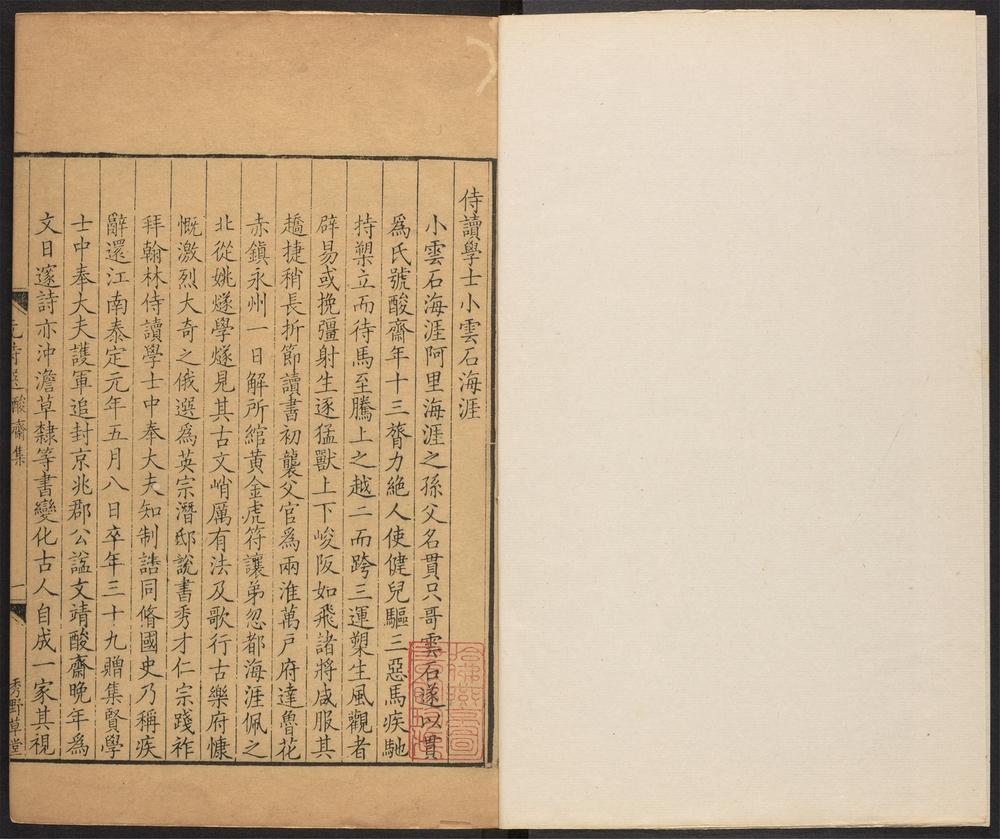 侍讀學士小雲石海涯
小雲石海涯阿里海涯之孫父名貫只哥雲石遂以貫
爲氏號酸齋年十三膂力絶人使健兒驅三惡馬疾馳
持槊立而待馬至騰上之越二而跨三運槊生風觀者
辟易或挽彊射生逐猛獸上下峻阪如飛諸將咸服其
趫捷稍長折節讀書初襲父官爲兩淮萬戶府達魯花
赤鎮永州一日解所綰黃金虎符讓弟忽都海涯佩之
北從姚燧學燧見其古文峭厲有法及歌行古樂府慷
慨激烈大奇之俄選爲英宗潛邸說書秀才仁宗踐祚
拜翰林侍讀學士中奉大夫知制誥同脩國史乃稱疾
辭還江南泰定元年五月八日卒年三十九贈集賢學
士中奉大夫護軍追封京兆郡公諡文靖酸齋晚年爲
文日邃詩亦沖澹草隸等書變化古人自成一家其視
元詩選 酸齋集 一 秀野草堂